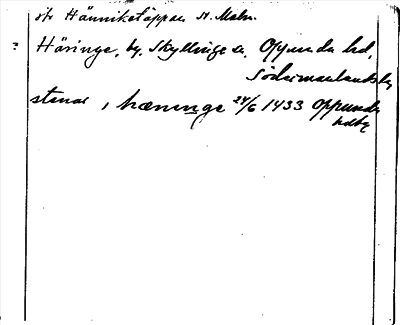 Hänniketäppan St. Malm.
Häringe, by, Skyllinge sn. Oppunda hd,
Södermanlands
stenae, hæninge 24/6 1433 Oppunda
hdbg